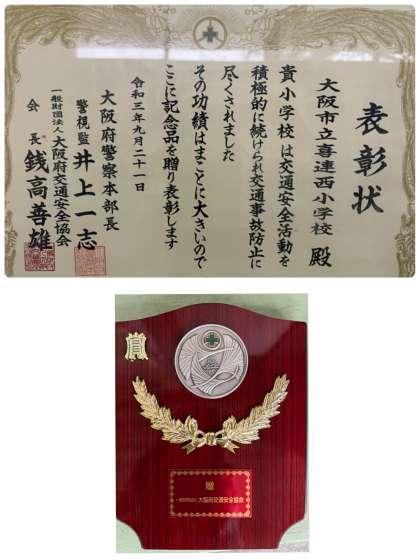 表彰状
大阪市立喜連西小学校 殿
貴小学校は交通安全活動を
積極的に続けられ交通事故防止に
尽くされました
その功績はまことに大きいので
ここに記念品を贈り表彰します
令和三年九月二十一日
大阪府警察本部長
警視監 井上一志
一般財団法人大阪府交通安全協会
会長 銭高善雄
賞
贈
一般財団法人 大阪府交通安全協会